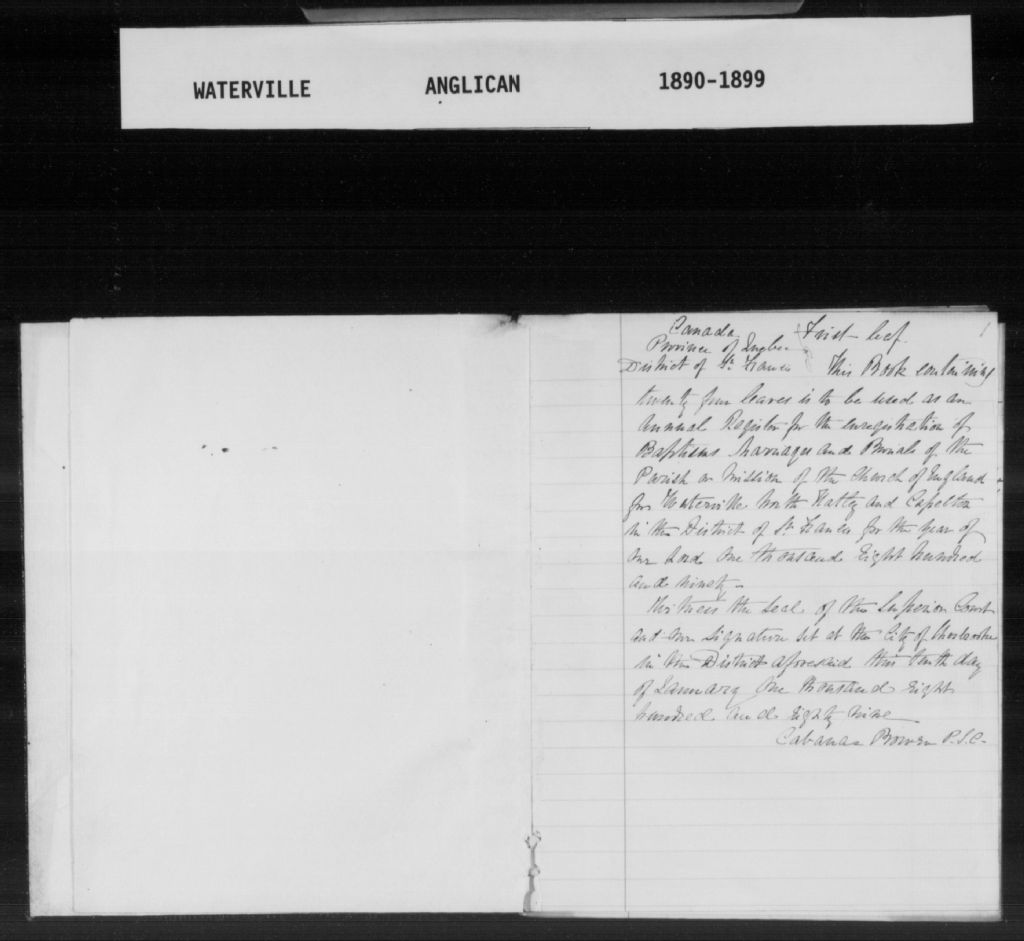 WATERVILLE ANGLICAN 1890-1899
1
Canada
Province of Quebec
District of St. Francis
First leaf.
This Book containing
twenty four leaves is to be used as an
Annual Register for the enregistration of
Baptisms Marriages and Burials of the
Parish or Mission of the Church of England
for Waterville North Hatley and Capelton
in the District of St. Francis for the year of
our Lord One thousand Eight hundred
and ninety -
Witness the Seal of the Superior Court
and our signature set at the City of Sherbrooke
in the District aforesaid this tenth day
of January One thousand Eight
hundred and Eighty nine
Cabanas Bowen P.S.C.